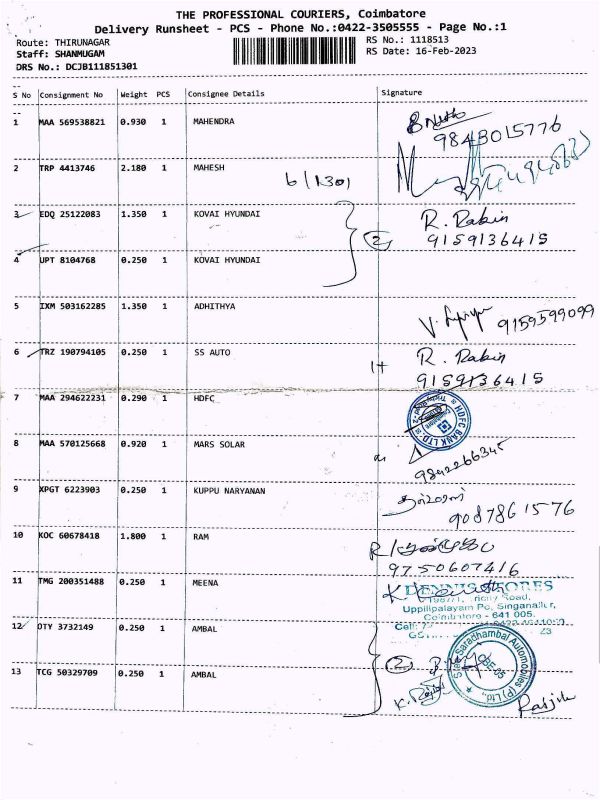 THE PROFESSIONAL COURIERS, Coimbatore
Delivery Runsheet - PCS - Phone No.:0422-3505555 - Page No.:1
Route: THIRUNAGAR
RS No.: 1118513
Staff: SHANMUGAM
RS Date: 16-Feb-2023
DRS No.: DCJB111851301
S No Consignment No Weight PCS Consignee Details Signature
1 MAA 569538821 0.930 1 MAHENDRA
9843015776
2 TRP 4413746 2.180 1 MAHESH
6/1301
3 EDQ 25122083 1.350 1 KOVAI HYUNDAI R. Rabin
2 9159136415
4 UPT 8104768 0.250 1 KOVAI HYUNDAI
5 IXM 503162285 1.350 1 ADHITHYA
9159599099
6 TRZ 190794105 0.250 1 SS AUTO R. Rabin
9159136415
7 MAA 294622231 0.290 1 HDFC
HDFC BANK LTD.
8 MAA 570125668 0.920 1 MARS SOLAR
9842266345
9 XPGT 6223903 0.250 1 KUPPU NARYANAN
9087861576
10 KOC 60678418 1.800 1 RAM
9750607416
11 TMG 200351488 0.250 1 MEENA
DENNIS STORES
Road,
Uppilipalayam Po, Singanallur,
Coimbatore - 641 005.
Cell:
12 OTY 3732149 0.250 1 AMBAL
2
Saradhambal Automobiles (P) Ltd.,
13 TCG 50329709 0.250 1 AMBAL